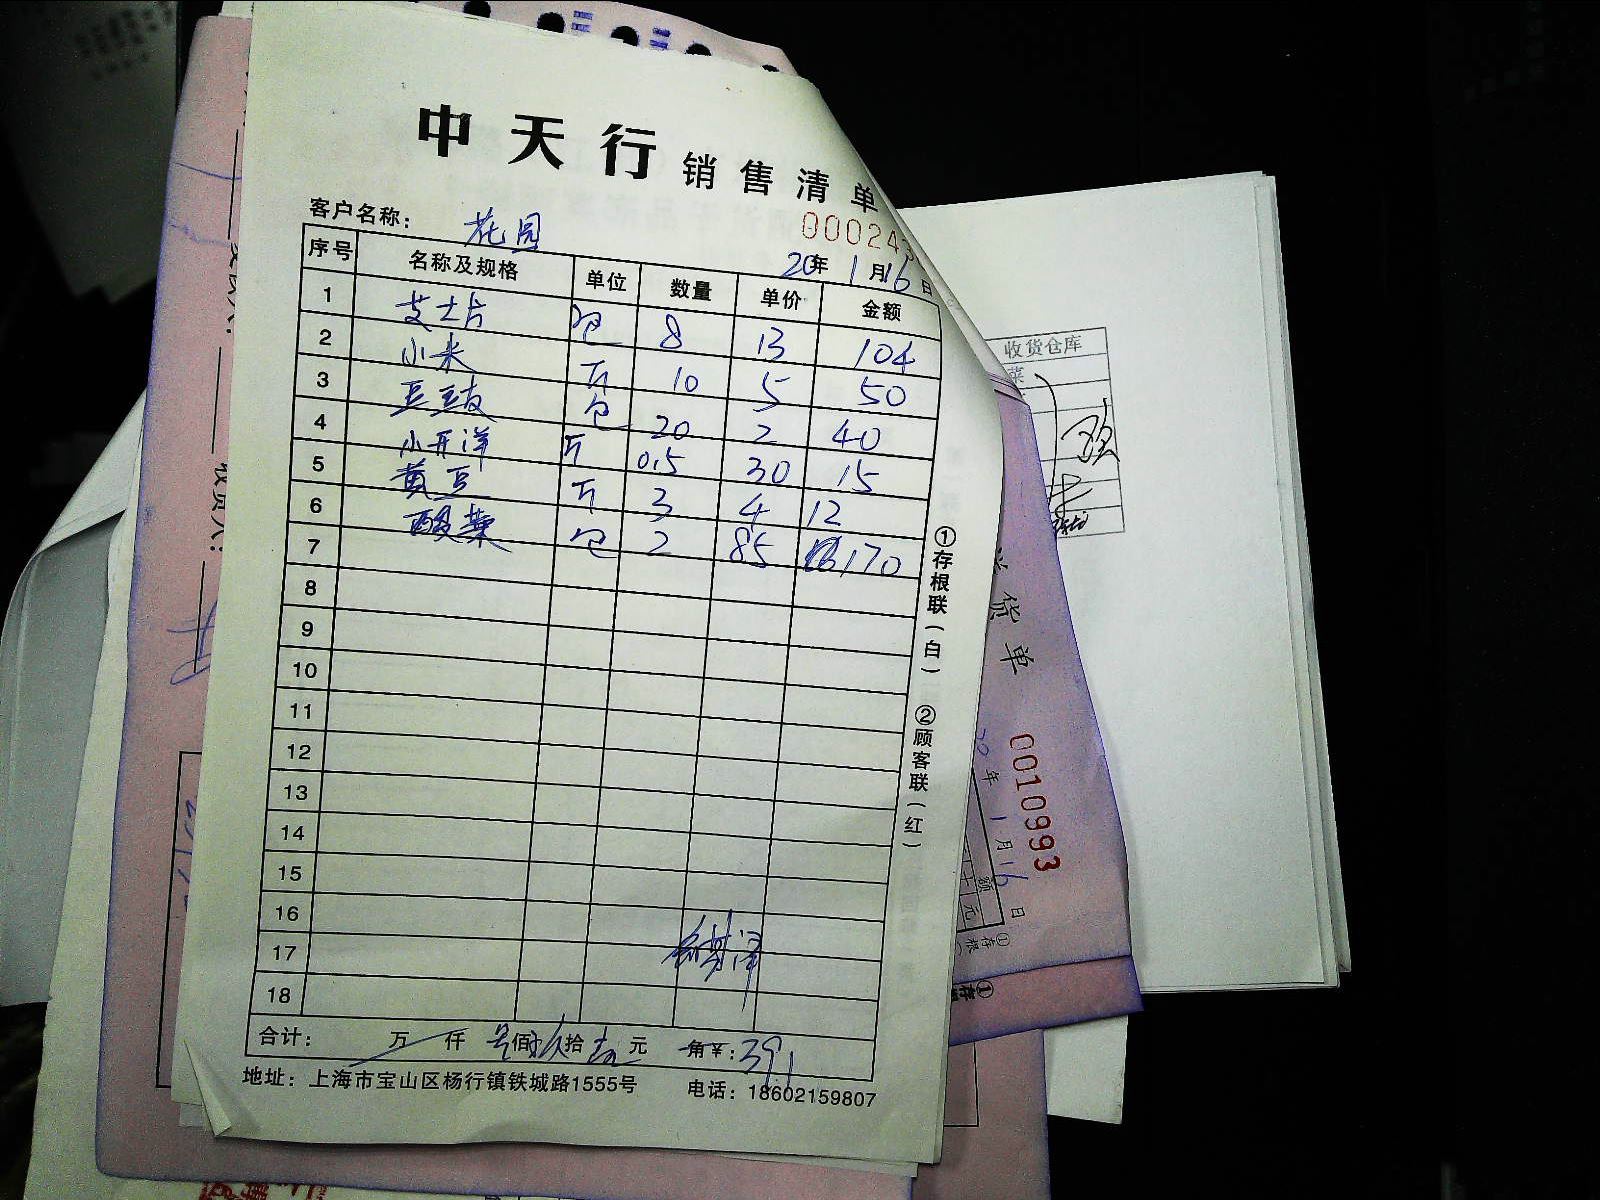 中天行 销售清单
客户名称: 花园 000243
20年 1月16日
序号 名称及规格 单位 数量 单价 金额
1 芝士片 包 8 13 104
2 小米 斤 10 5 50
3 豆豉 包 20 2 40
4 小开洋 斤 0.5 30 15
5 黄豆 斤 3 4 12
6 酸菜 包 2 85 170
7
8
9
10
11
12
13
14
15
16
17
18
合计: 万 仟 佰 拾 元 角 ¥: 391
地址: 上海市宝山区杨行镇铁城路1555号 电话: 18602159807
①存根联(白) ②顾客联(红)
收货仓库
菜
货单
0010993
20年 1月16日
收货人: